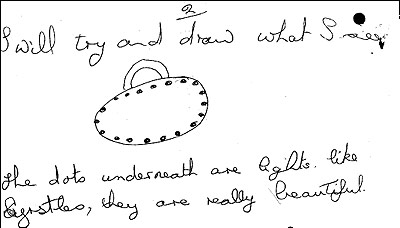 2
I will try and draw what I see
The dots underneath are lights. like
Crystles, they are really beautiful.